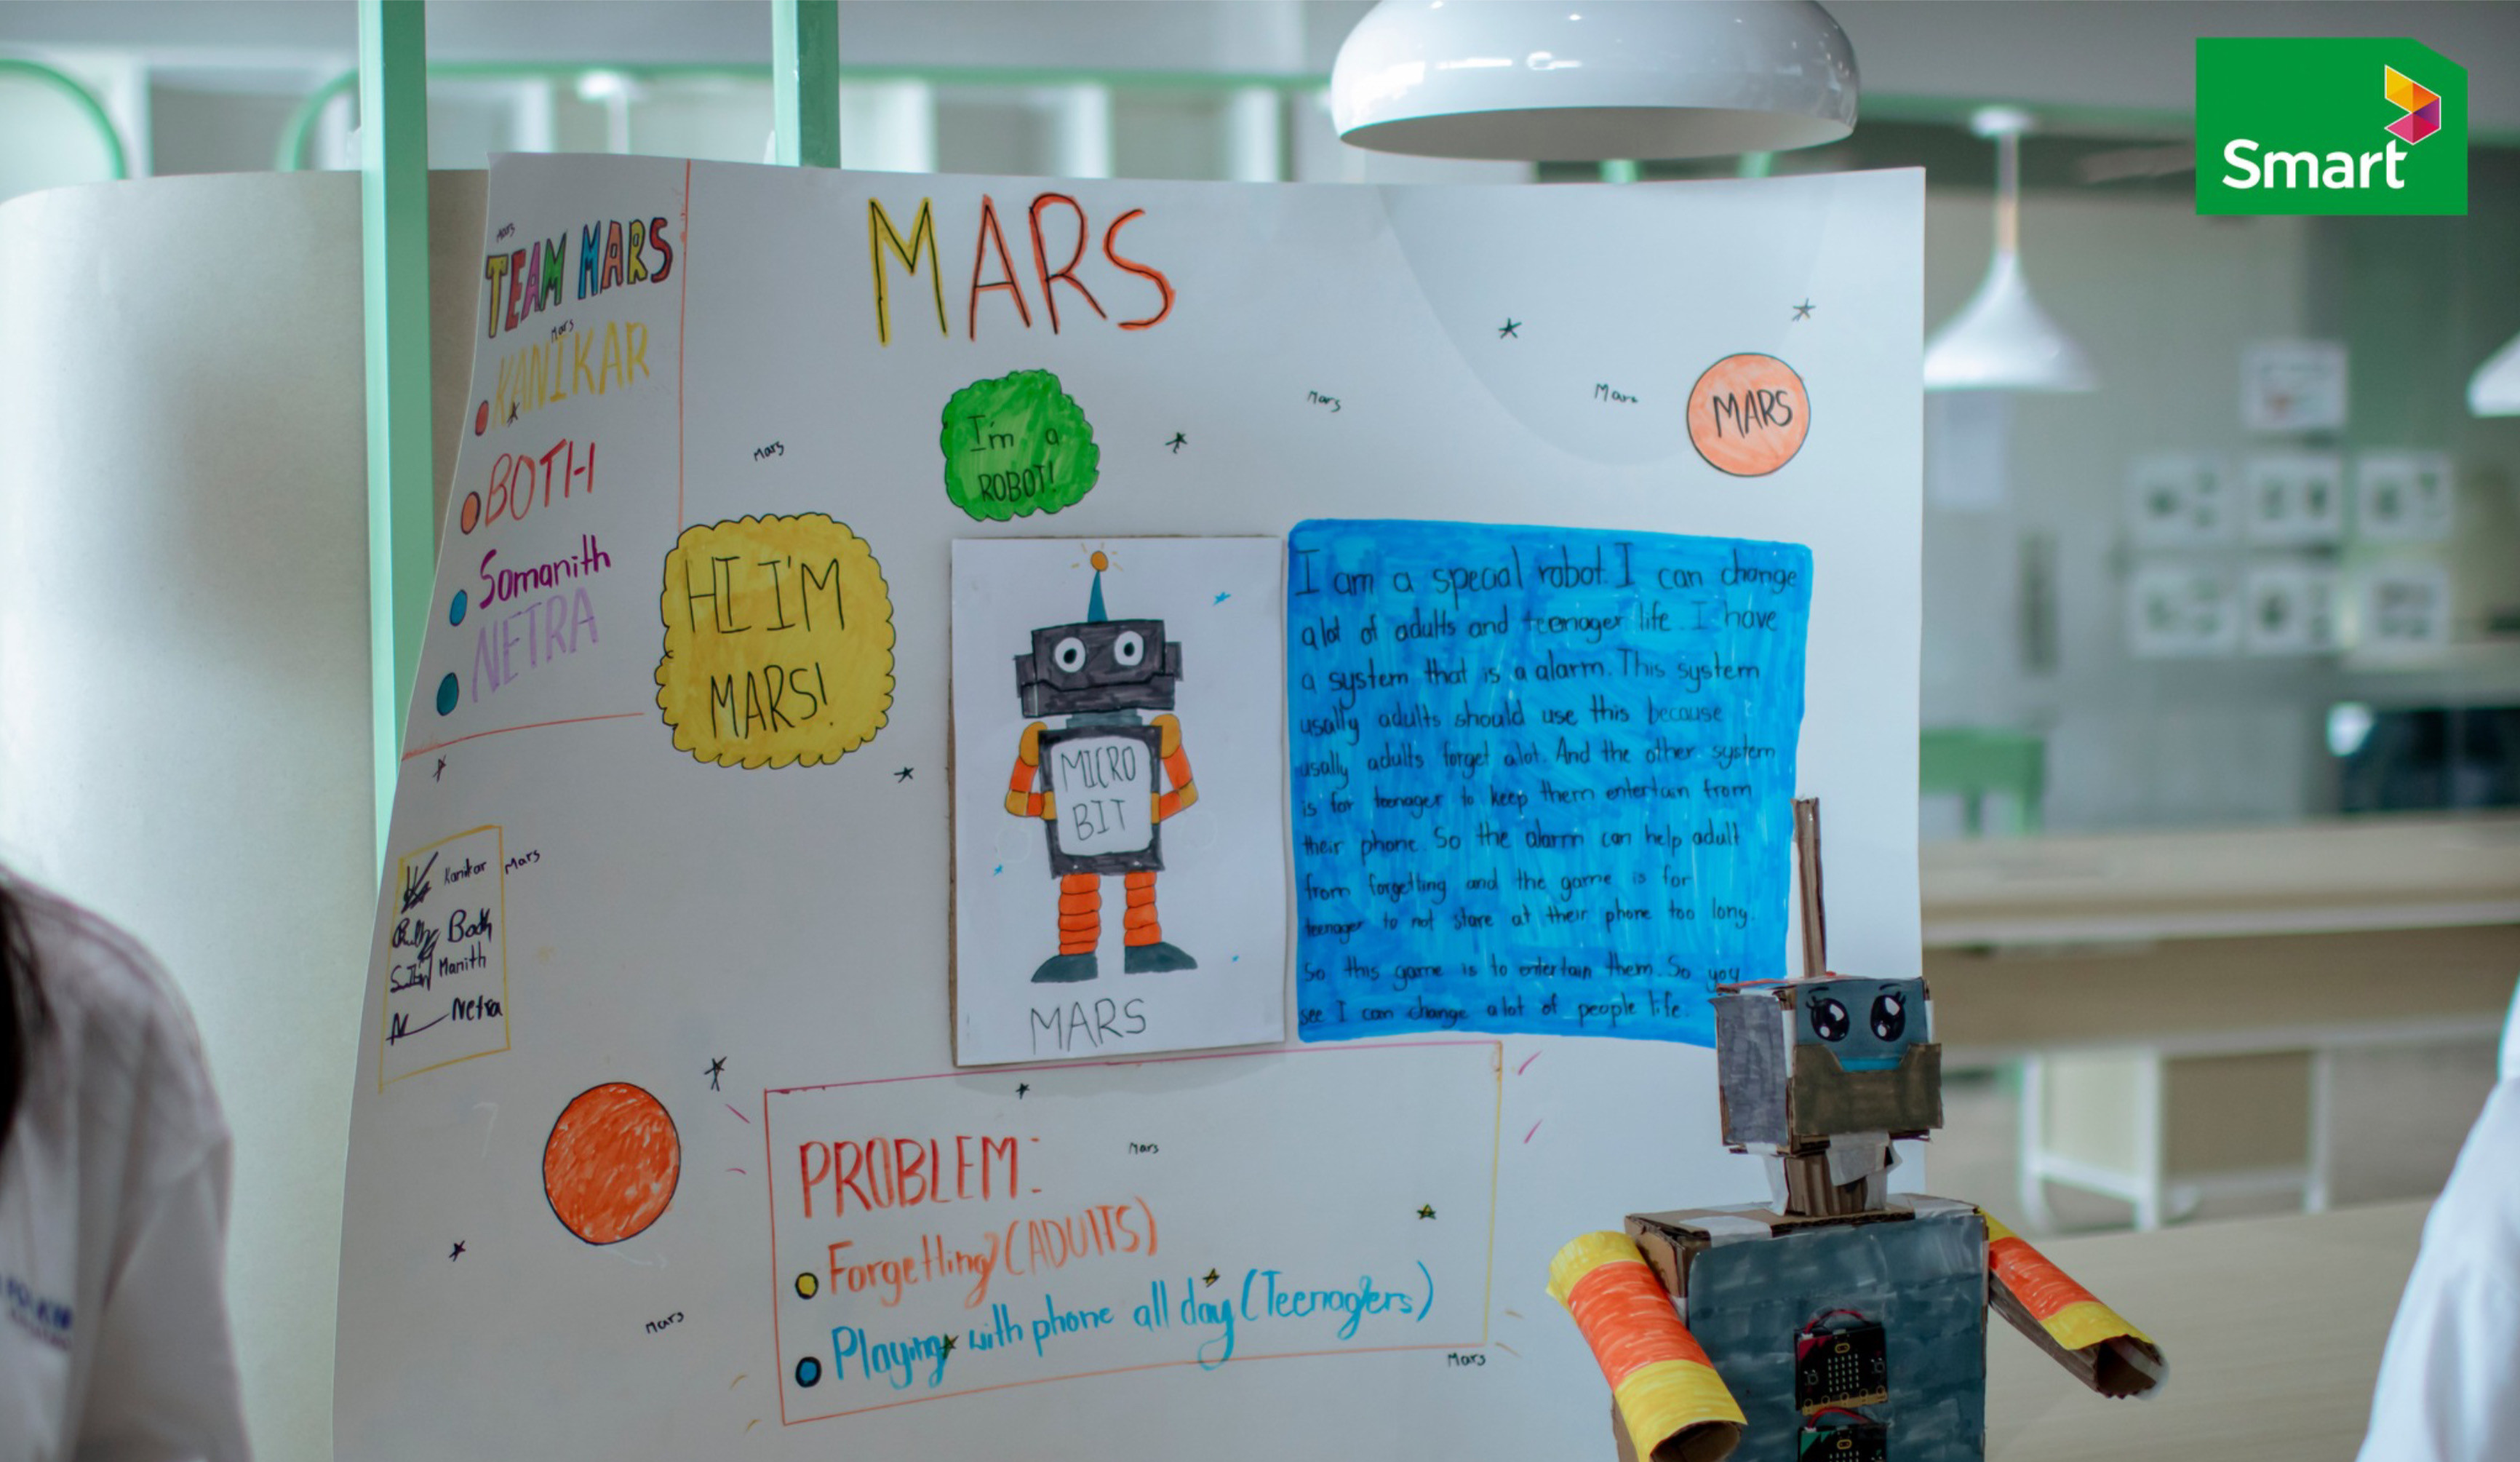 Smart
MARS
Mars
TEAM MARS
Mars
KANIKAR
BOTH
Somanith
NETRA
Mars
Mars
MARS
Mars
I'm a
ROBOT!
HI I'M
MARS!
MICRO
BIT
MARS
I am a special robot. I can change
alot of adults and teenager life. I have
a system that is a alarm. This system
usally adults should use this because
usally adults forget alot. And the other system
is for teenager to keep them entertain from
their phone. So the alarm can help adult
from forgetting and the game is for
teenager to not stare at their phone too long.
So this game is to entertain them. So you
see I can change alot of people life.
Kanikar
Mars
Both
Manith
Netra
PROBLEM:
Mars
Forgetting (ADULTS)
Playing with phone all day (Teenagers)
Mars
Mars